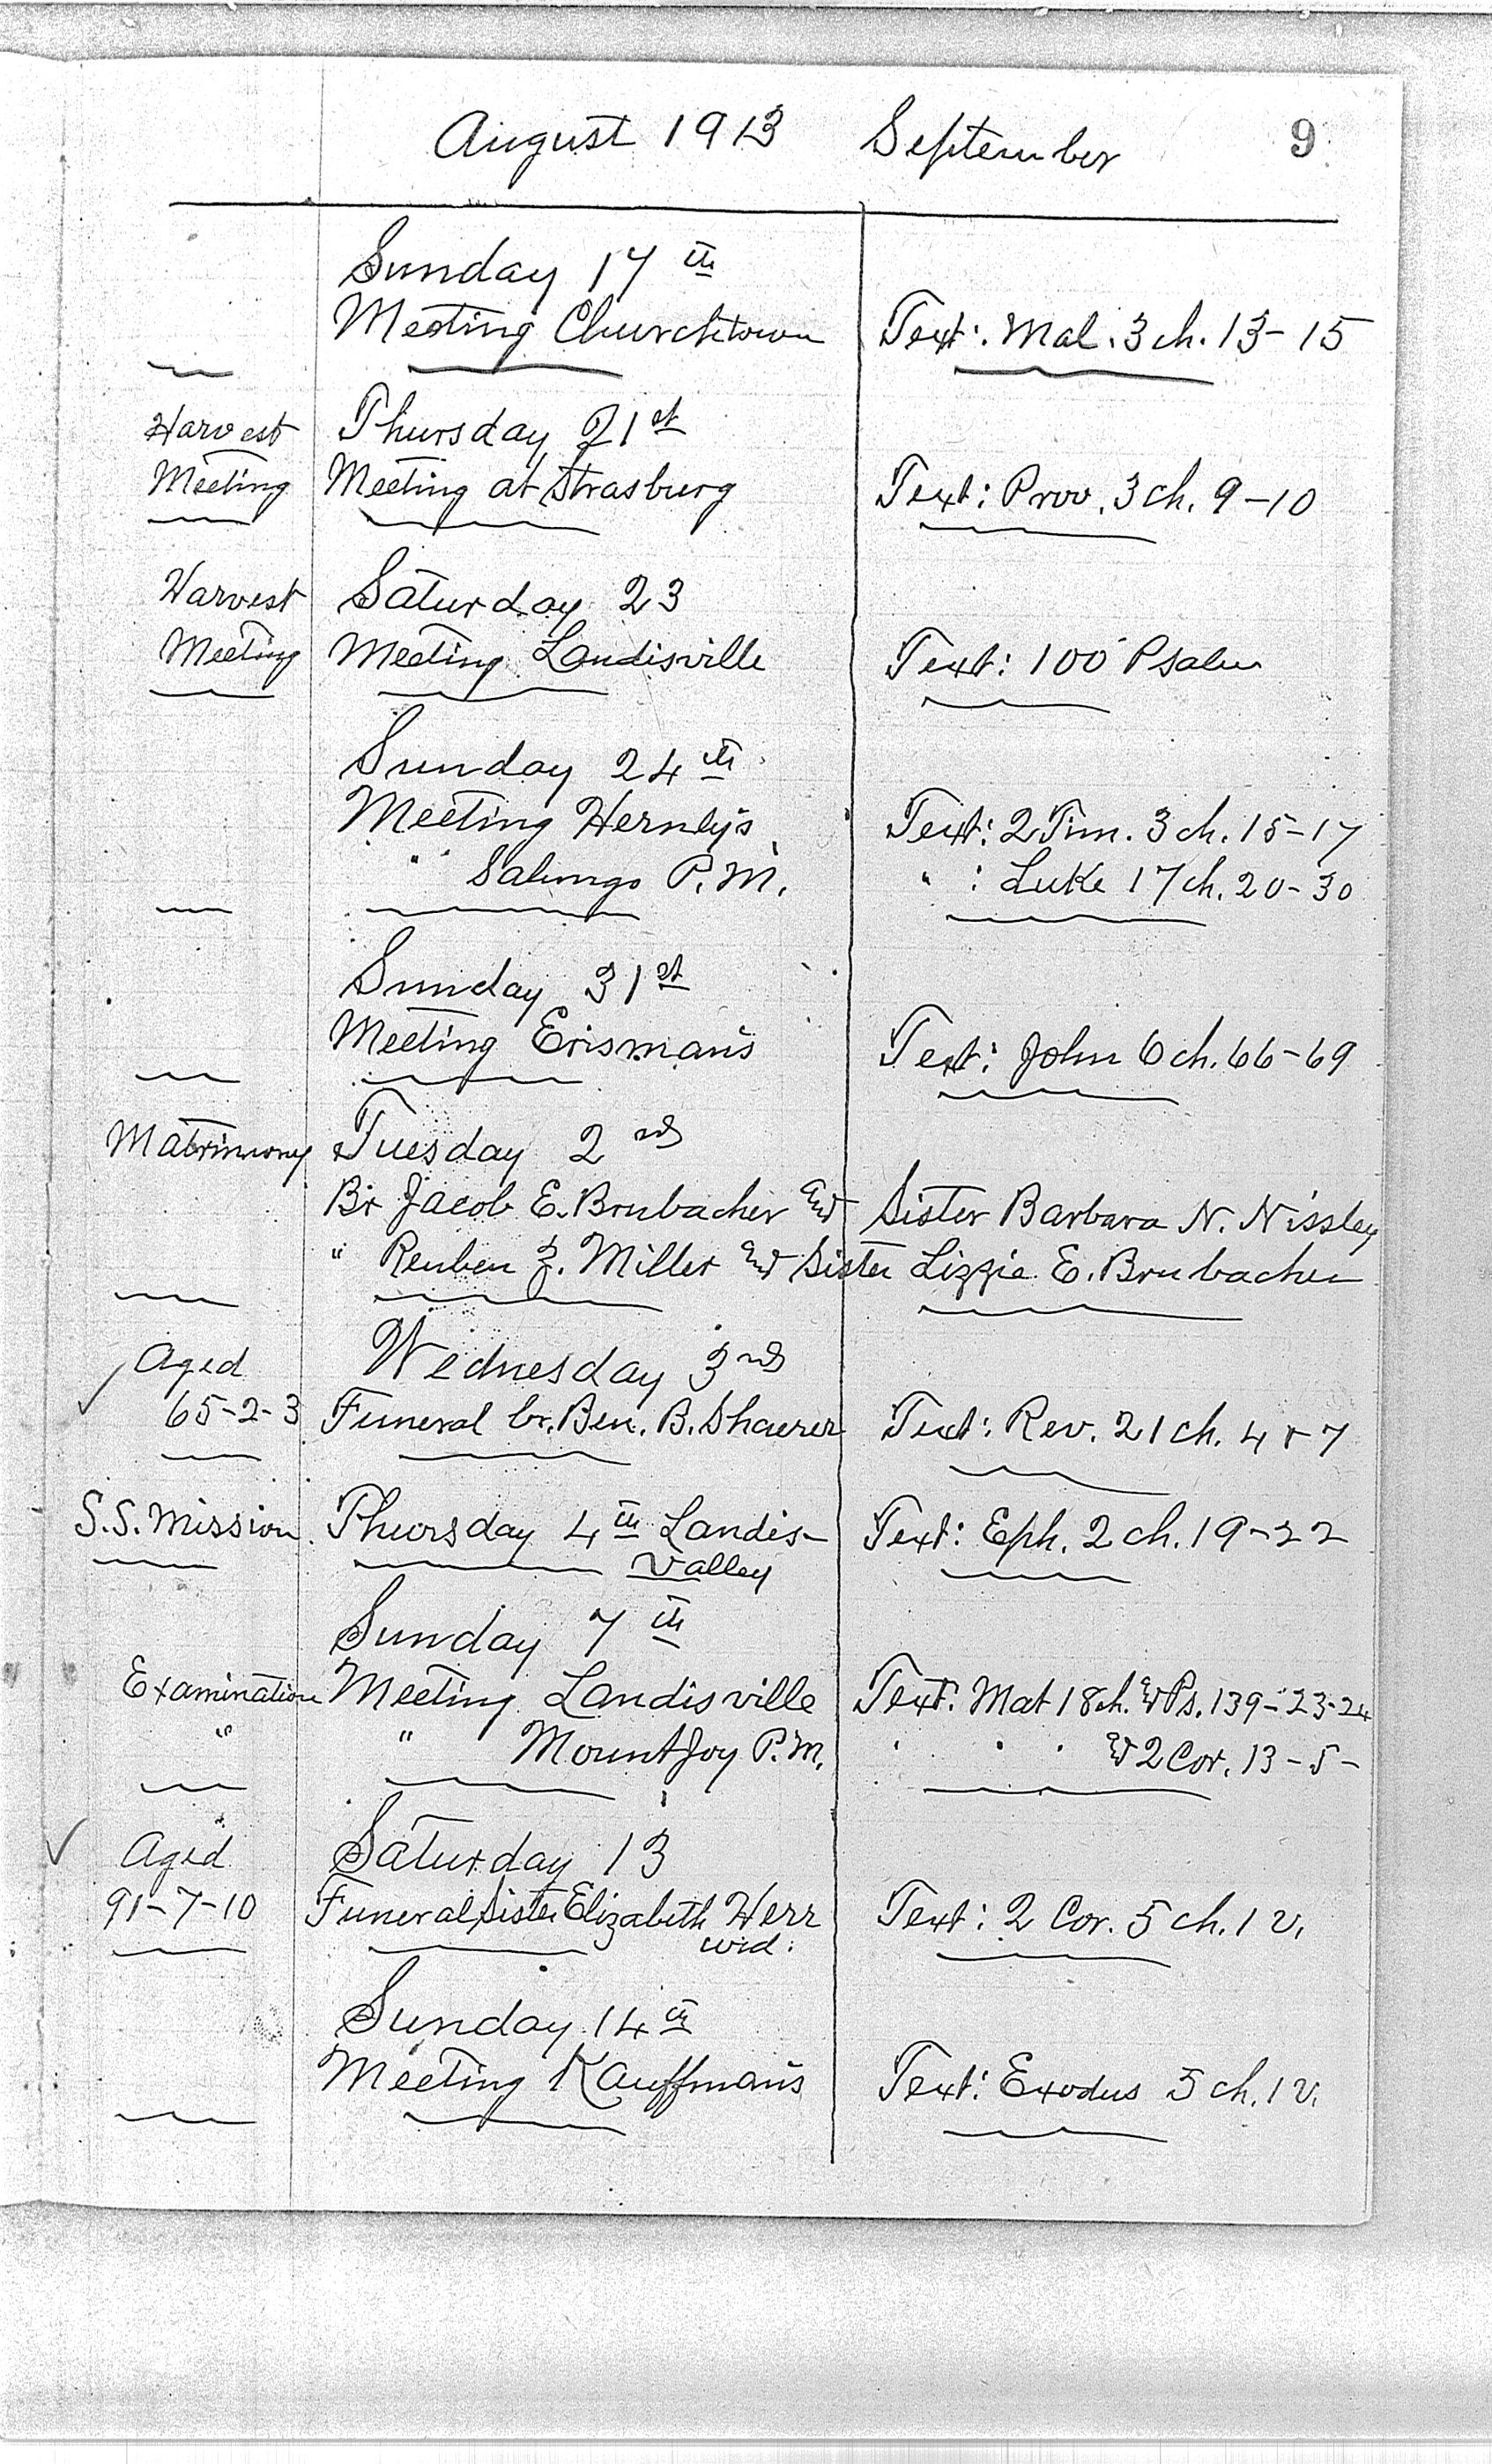 August 1913 September 9
Sunday 17th
Meeting Churchtown Text: Mal. 3 ch. 13-15
Harvest Thursday 21st
Meeting Meeting at Strasburg Text: Prov. 3 ch. 9-10
Harvest Saturday 23
Meeting Meeting Landisville Text: 100 Psalm
Sunday 24th
Meeting Hernley's Text: 2 Tim. 3 ch. 15-17
" Salunga P.M. " : Luke 17 ch. 20-30
Sunday 31st
Meeting Erisman's Text: John 6 ch. 66-69
Matrimony Tuesday 2nd
Br Jacob E. Brubacher & Sister Barbara N. Nissley
" Reuben Z. Miller & Sister Lizzie E. Brubacher
Aged Wednesday 3rd
✓ 65-2-3 Funeral br. Ben. B. Shaerer Text: Rev. 21 ch. 4 & 7
S.S. Mission Thursday 4th Landis- Text: Eph. 2 ch. 19-22
Valley
Sunday 7th
Examination Meeting Landisville Text: Mat 18 ch. & Ps. 139-23-24
" " Mount Joy P.M. " " " & 2 Cor. 13-5-
✓ Aged Saturday 13
91-7-10 Funeral Sister Elizabeth Herr Text: 2 Cor. 5 ch. 1 v.
wid.
Sunday 14th
Meeting Kauffman's Text: Exodus 5 ch. 1 v.